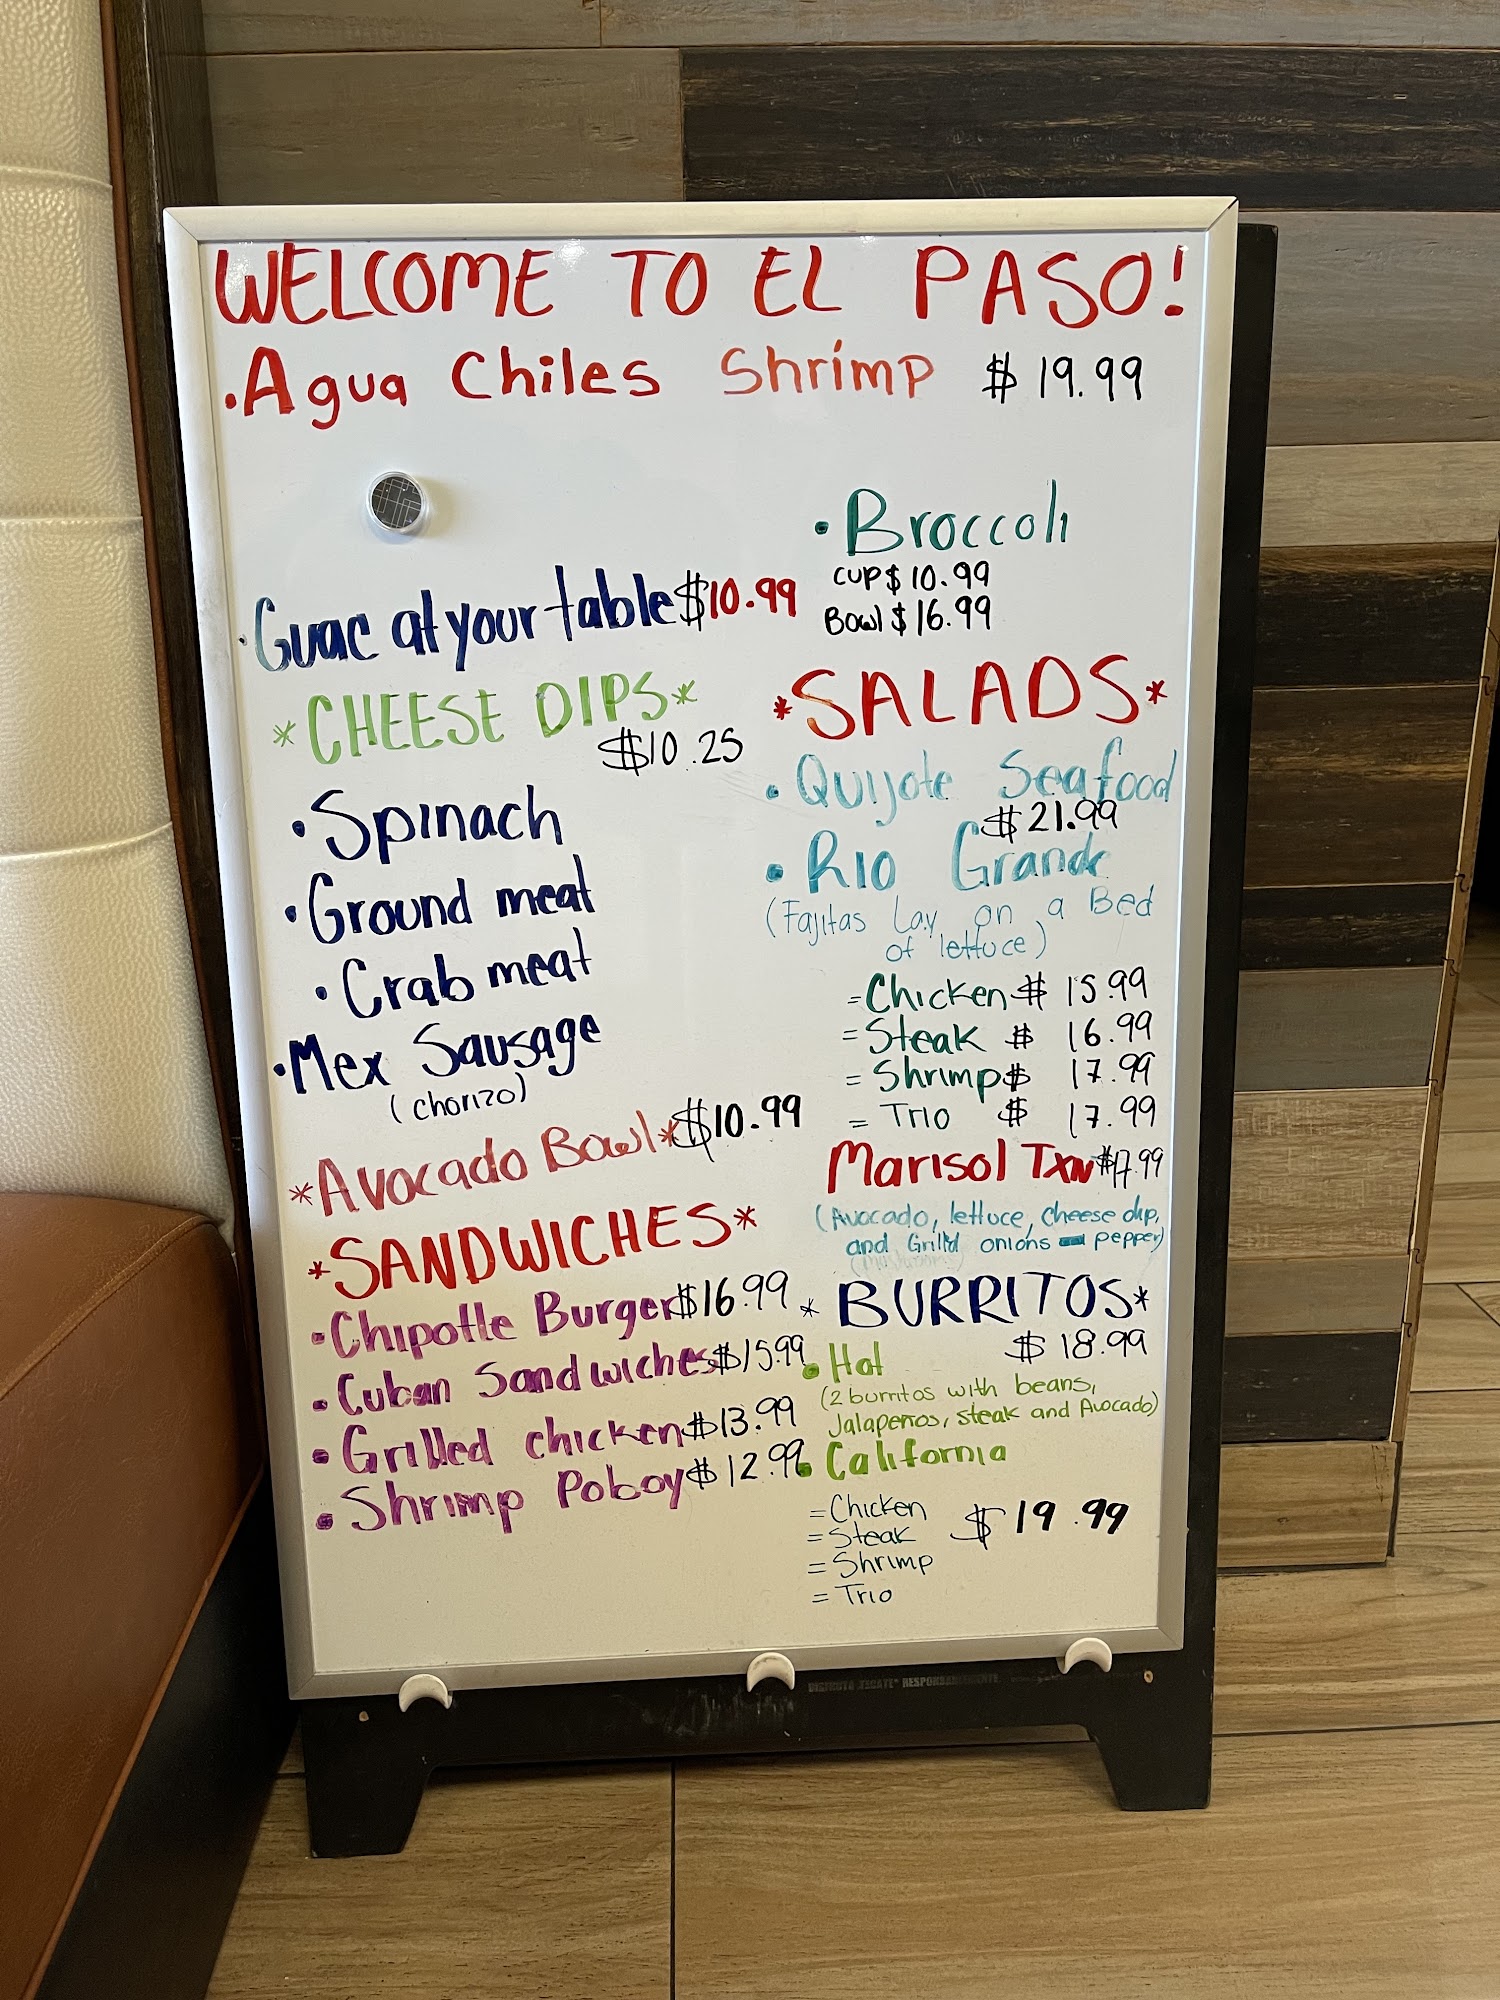 WELCOME TO EL PASO!
• Agua Chiles Shrimp $19.99
• Guac at your table $10.99
*CHEESE DIPS*
$10.25
• Spinach
• Ground meat
• Crab meat
• Mex Sausage
(chorizo)
*Avocado Bowl* $10.99
*SANDWICHES*
• Chipotle Burger $16.99
• Cuban Sandwiches $15.99
• Grilled chicken $13.99
• Shrimp Poboy $12.99
• Broccoli
CUP $10.99
Bowl $16.99
*SALADS*
• Quijote Seafood
$21.99
• Rio Grande
(Fajitas Lay on a Bed
of lettuce)
= Chicken $15.99
= Steak $16.99
= Shrimp $17.99
= Trio $17.99
Marisol TXN $17.99
(Avocado, lettuce, cheese dip,
and Grilld onions pepper)
*BURRITOS*
$18.99
• Hot
(2 burritos with beans,
Jalapenos, steak and Avocado)
• California
= Chicken
= Steak $19.99
= Shrimp
= Trio